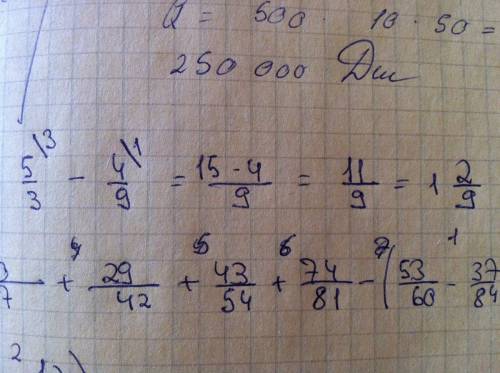 Q = 500 · 10 · 50 =
250 000 Дж
5/3 \3 - 4/9 \1 = 15 - 4/9 = 11/9 = 1 2/9
3/7 + 29/42 + 5 43/54 + 6 74/81 - 7 (53/60 - 1 37/84
2